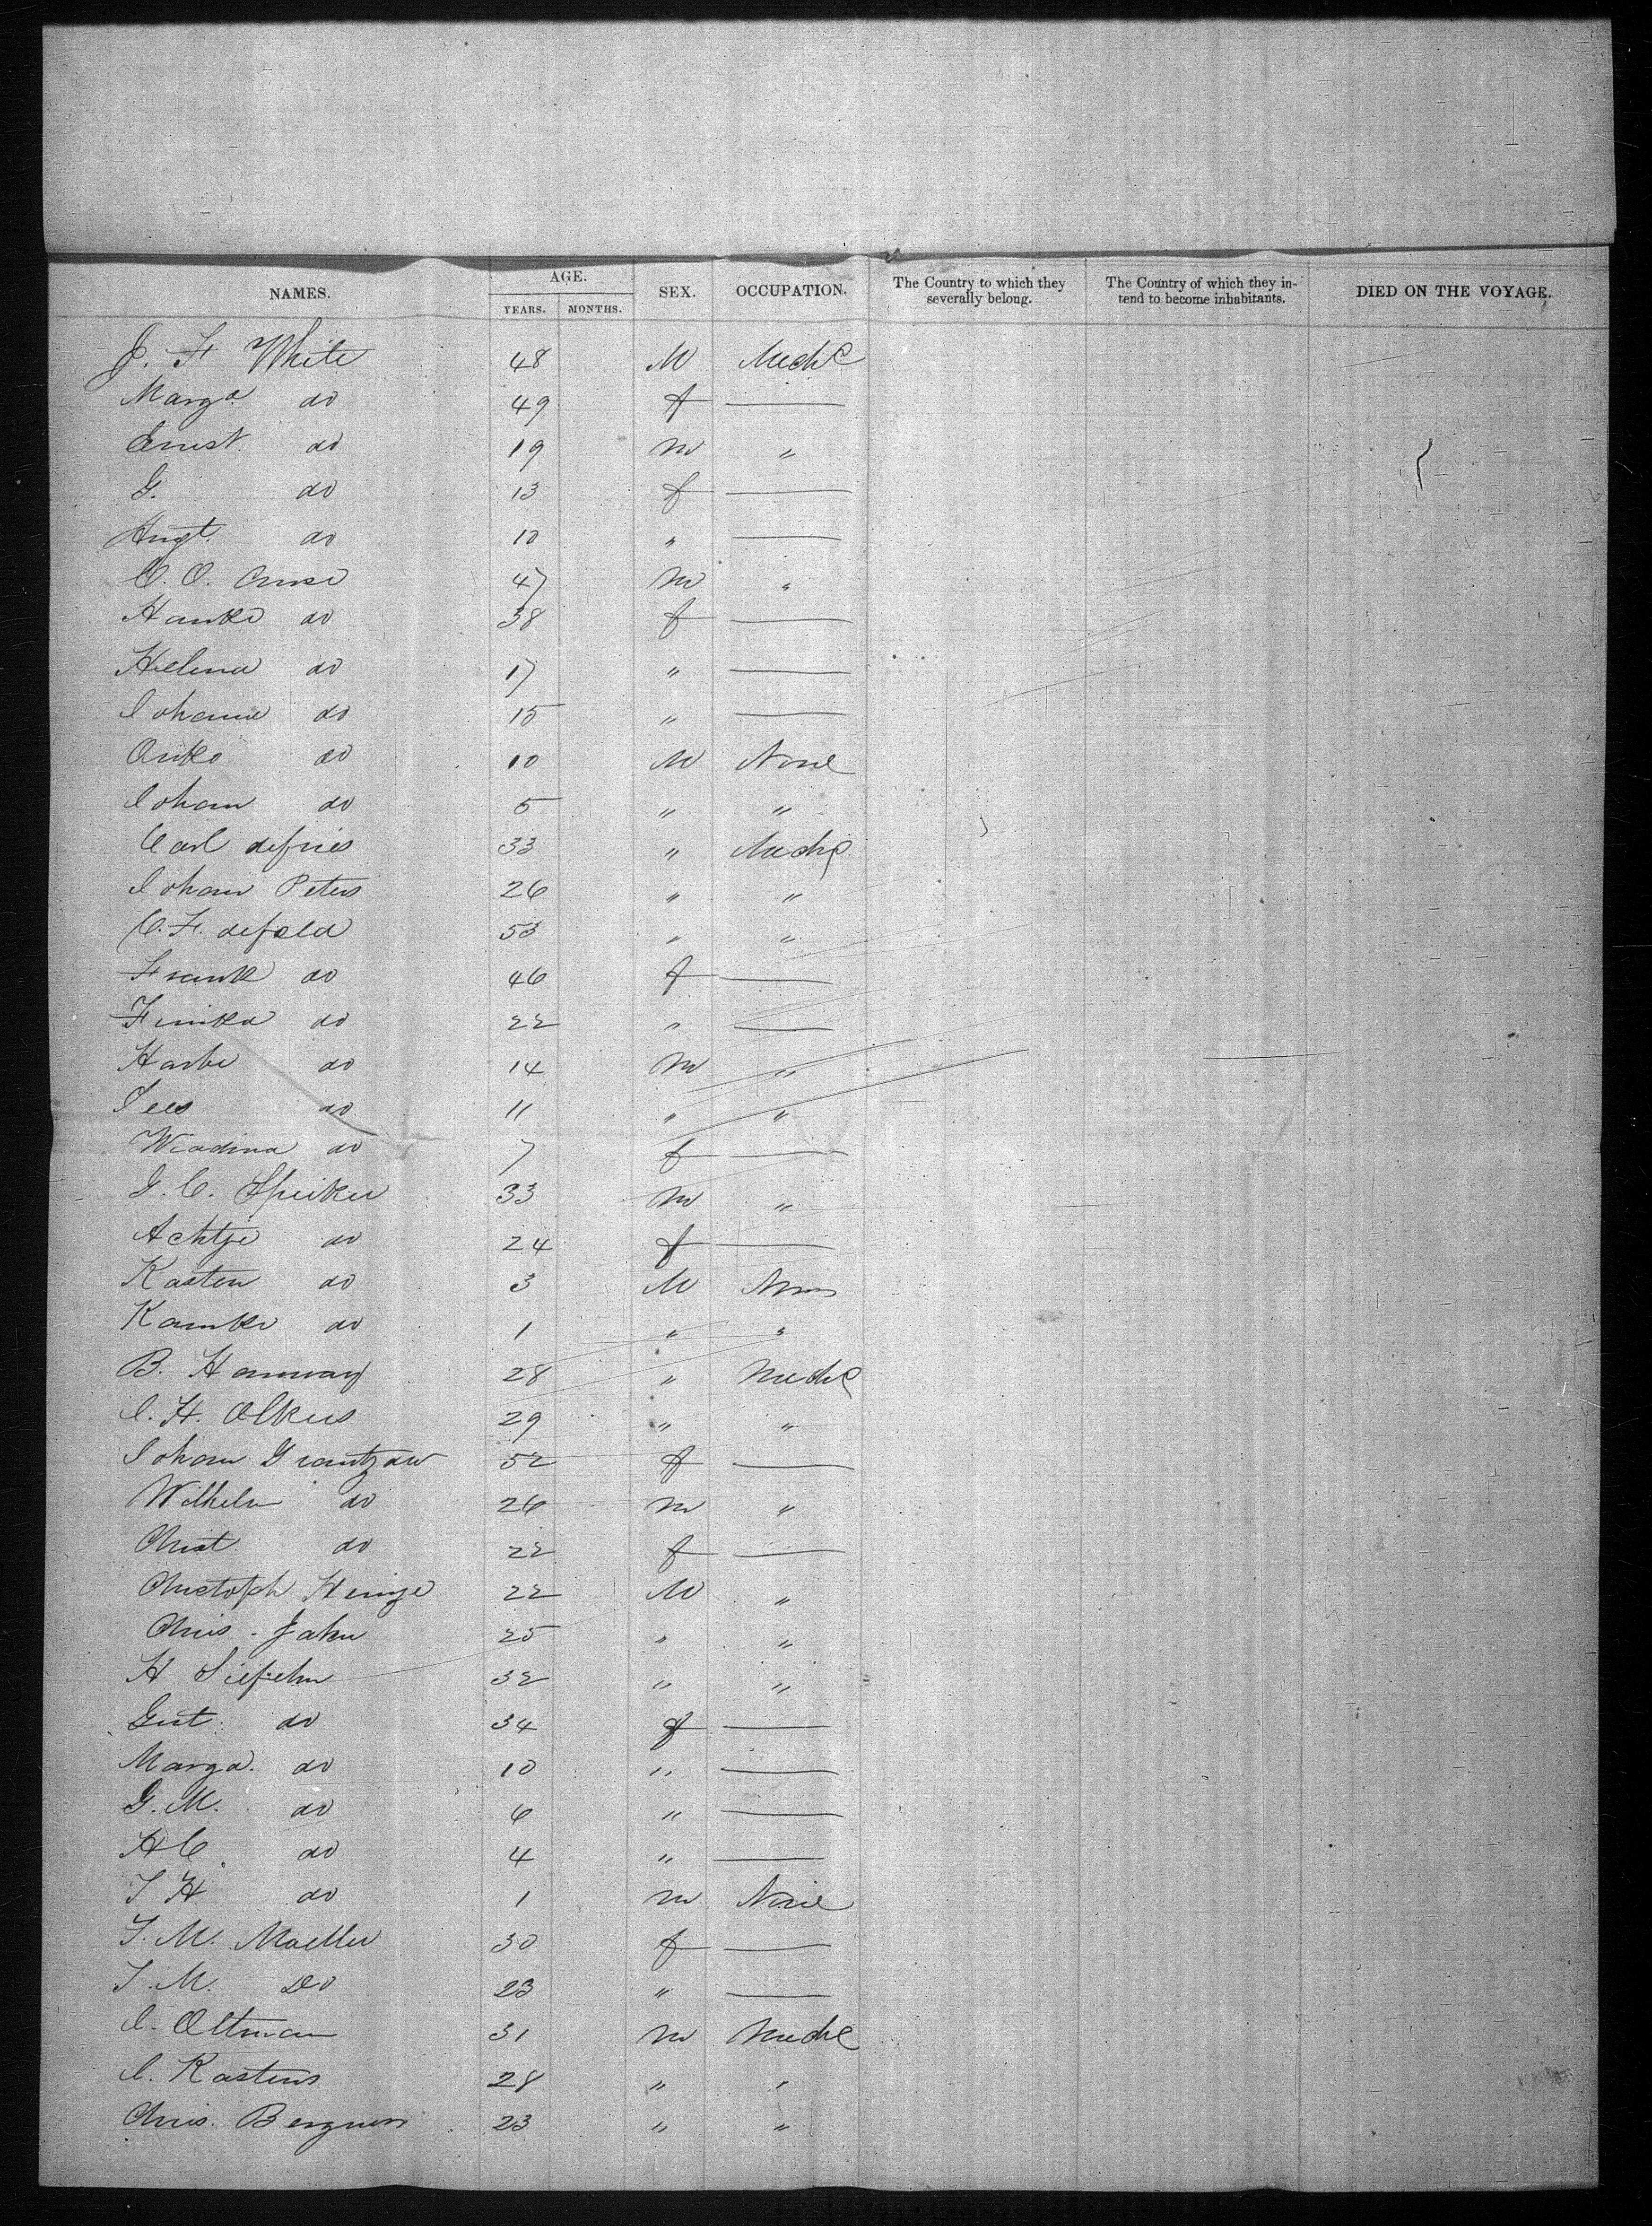 NAMES. AGE. SEX. OCCUPATION. The Country to which they severally belong. The Country of which they intend to become inhabitants. DIED ON THE VOYAGE.
YEARS. MONTHS.
J. F. White 48 M Mechc
Marga. do 49 f —
Ernest. do 19 m "
G. do 13 f —
Augt. do 10 " —
C. O. Cruse 47 m "
Hanke do 38 f —
Helena do 17 " —
Johanne do 15 " —
Onko do 10 M None
Johann do 5 " "
Carl defries 33 " Mechc
Johann Peters 26 " "
C. F. 53 " "
Frauk do 46 f —
Femka do 22 " —
Harbe do 14 m "
do 11 " "
do 7 f —
G. C. Speiker 33 m "
Achtje do 24 f —
Kasten do 3 M None
Kamke do 1 " "
B. 28 " Mechc
J. H. 29 " "
Johann Grantzow 52 f —
Wilhelm do 26 m "
Christ do 22 f —
Christoph 22 M "
Chris. Jahn 25 " "
H 32 " "
Gert. do 34 f —
Marga. do 10 " —
G. M. do 6 " —
H C do 4 " —
J H do 1 m None
J. M. Moeller 30 f —
J. M. Do 23 " —
J. Oltman 31 m Mechc
J. Kastens 28 " "
Chris. 23 " "